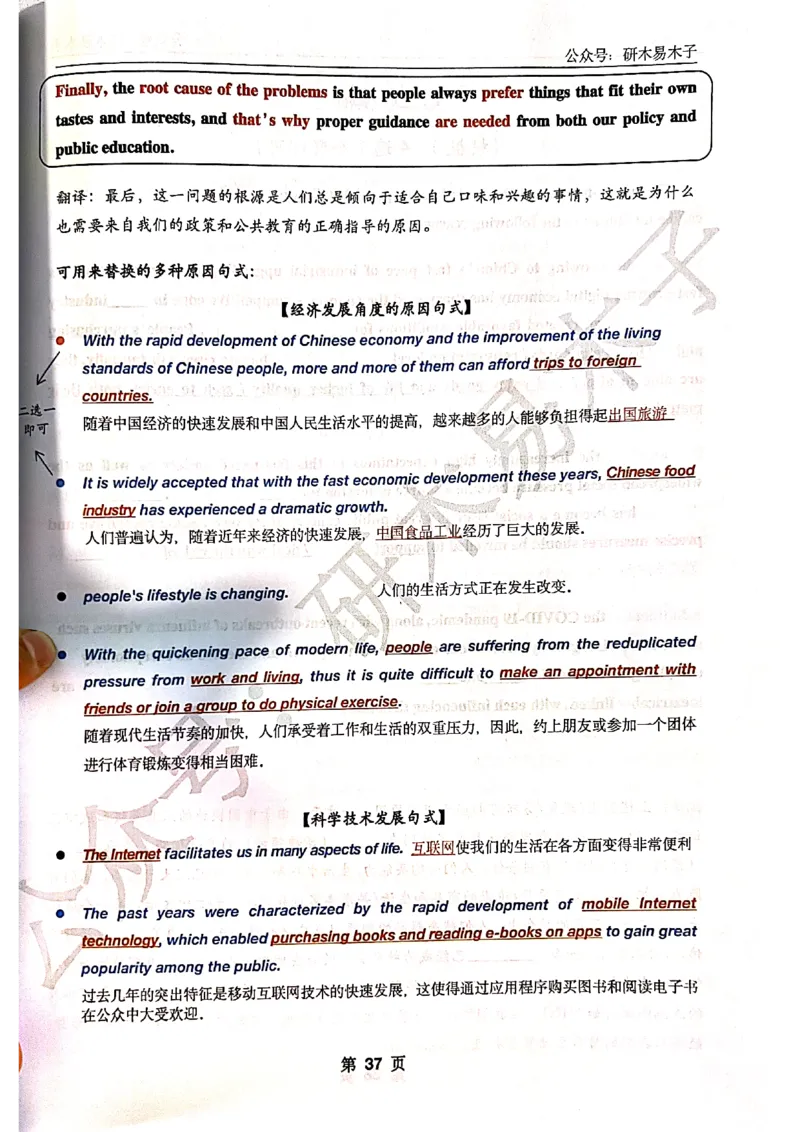 公众号：研木易木子
Finally, the root cause of the problems is that people always prefer things that fit their own
tastes and interests, and that's why proper guidance are needed from both our policy and
public education.
翻译：最后，这一问题的根源是人们总是倾向于适合自己口味和兴趣的事情，这就是为什么
也需要来自我们的政策和公共教育的正确指导的原因。
可用来替换的多种原因句式：
【经济发展角度的原因句式】
With the rapid development of Chinese economy and the improvement of the living
standards of Chinese people, more and more of them can afford trips to foreign
countries.
二选一
即可
随着中国经济的快速发展和中国人民生活水平的提高，越来越多的人能够负担得起出国旅游
It is widely accepted that with the fast economic development these years, Chinese food
industry has experienced a dramatic growth.
人们普遍认为，随着近年来经济的快速发展，中国食品工业经历了巨大的发展.
people's lifestyle is changing. 人们的生活方式正在发生改变.
With the quickening pace of modern life, people are suffering from the reduplicated
pressure from work and living, thus it is quite difficult to make an appointment with
friends or join a group to do physical exercise.
随着现代生活节奏的加快，人们承受着工作和生活的双重压力，因此，约上朋友或参加一个团体
进行体育锻炼变得相当困难.
【科学技术发展句式】
The Internet facilitates us in many aspects of life. 互联网使我们的生活在各方面变得非常便利
The past years were characterized by the rapid development of mobile Internet
technology, which enabled purchasing books and reading e-books on apps to gain great
popularity among the public.
过去几年的突出特征是移动互联网技术的快速发展，这使得通过应用程序购买图书和阅读电子书
在公众中大受欢迎.
第 37 页
公众号：研木易木子